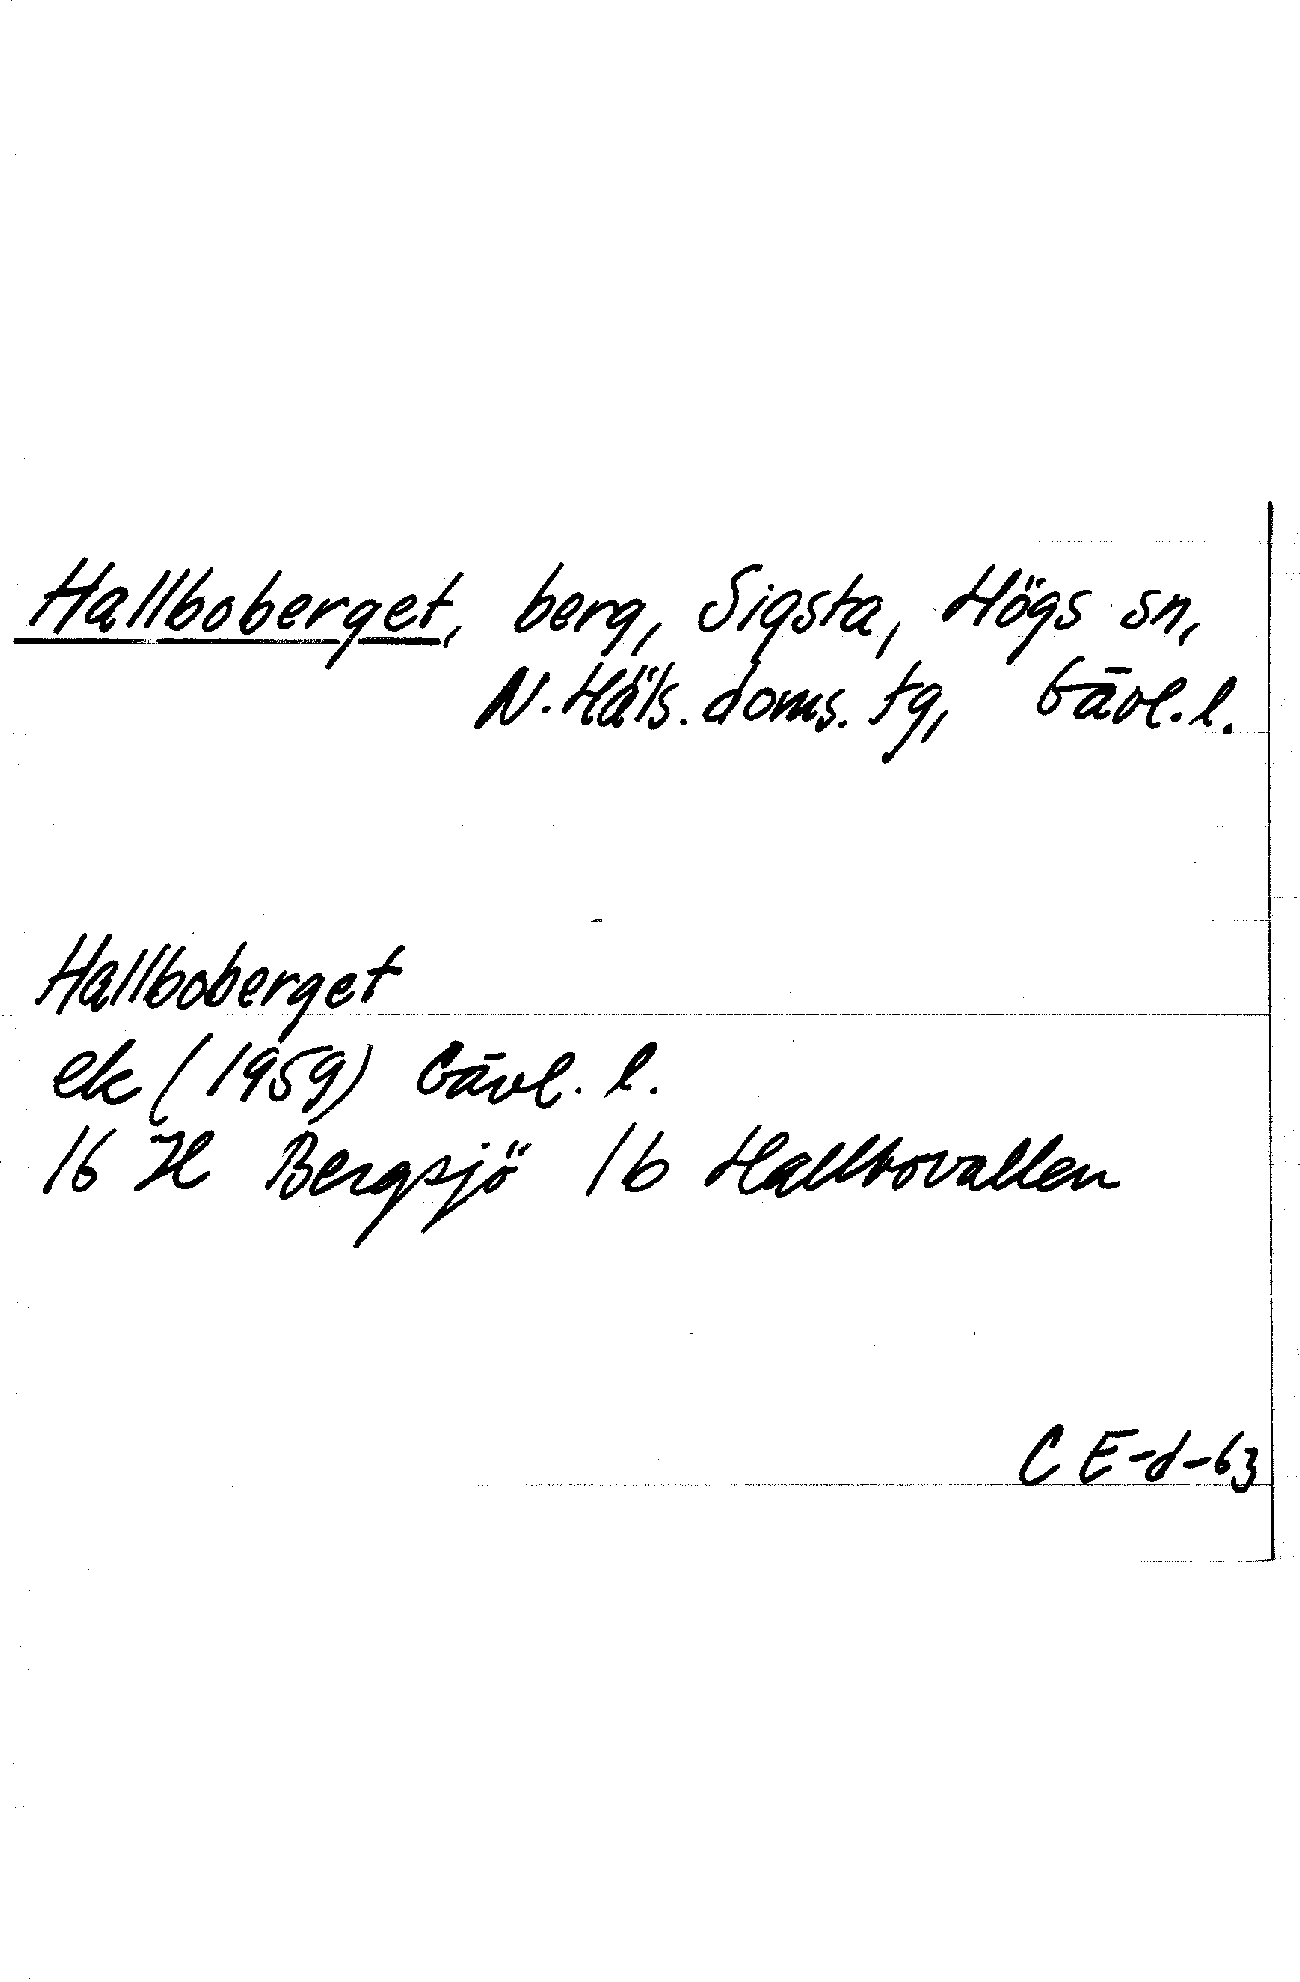 Hallboberget, berg, Sigsta, Högs sn,
N. Häls. doms. tg, Gävl. l.
Hallboberget
ek (1959) Gävl. l.
16 H Bergsjö 1b Hallbovallen
C E-d-63